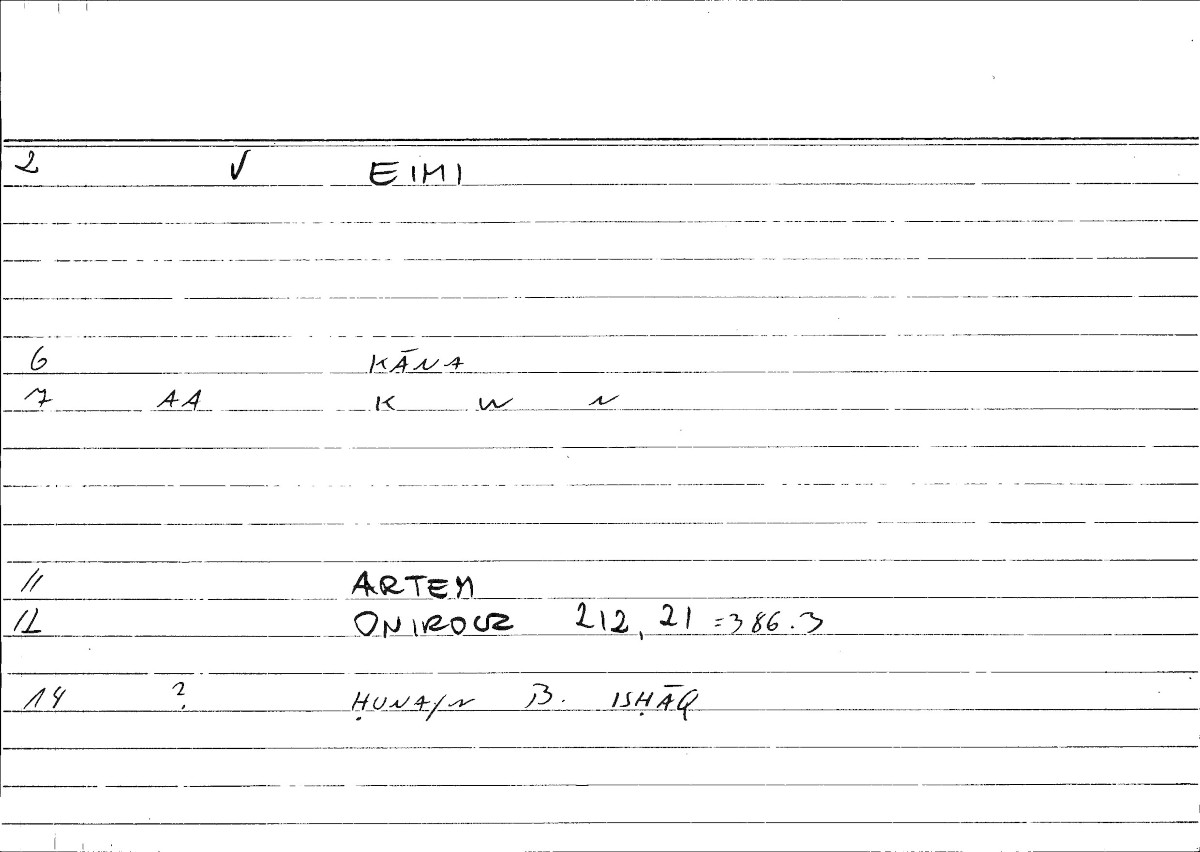 2 √ EIMI
6 KĀNA
7 AA K W N
11 ARTEM
12 ONIROCR 212, 21 =386.3
14 ? ḤUNAYN B. ISḤĀQ